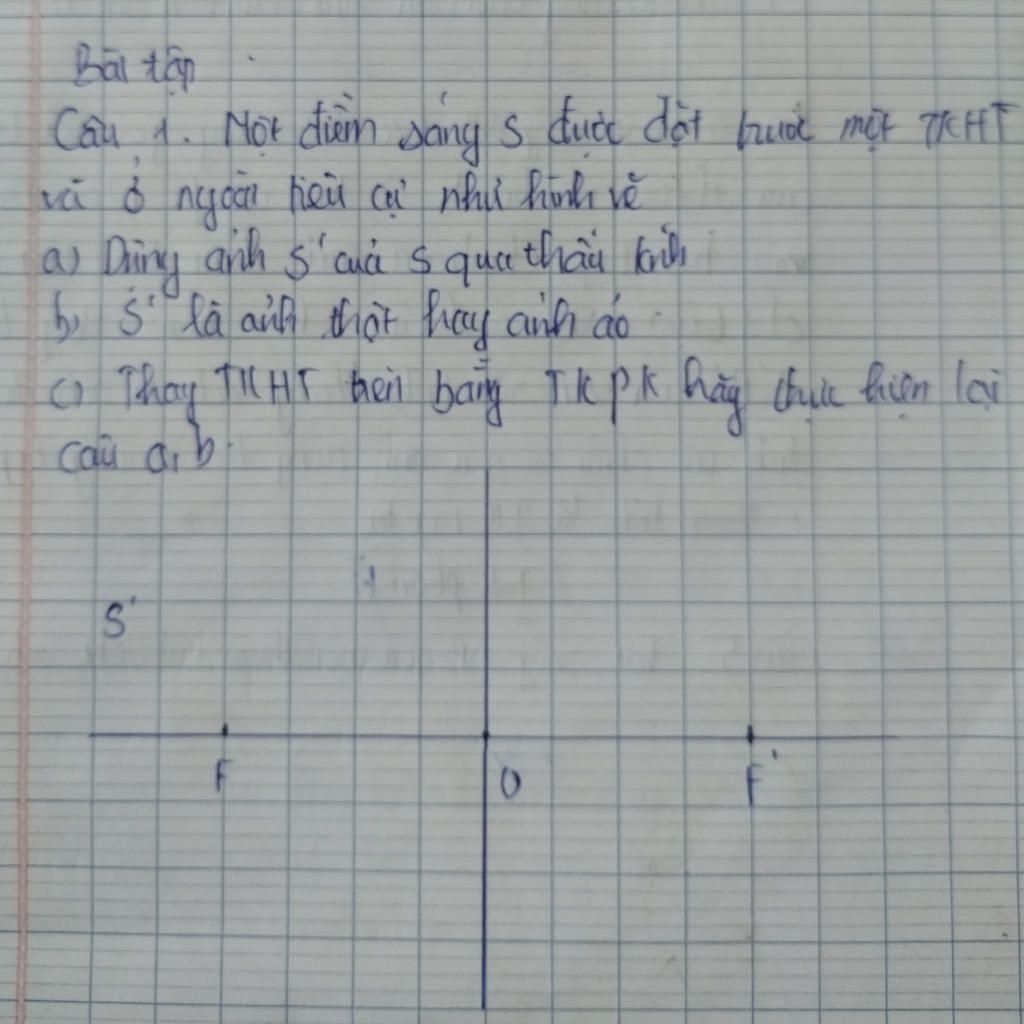 Bài tập
Câu 1. Một điểm sáng S được đặt trước một TKHT
và ở ngoài tiêu cự như hình vẽ
a) Dựng ảnh S' của S qua thấu kính
b) S' là ảnh thật hay ảnh ảo
c) Thay TKHT trên bằng TKPK hãy thực hiện lại
câu a, b.
S
F
O
F'